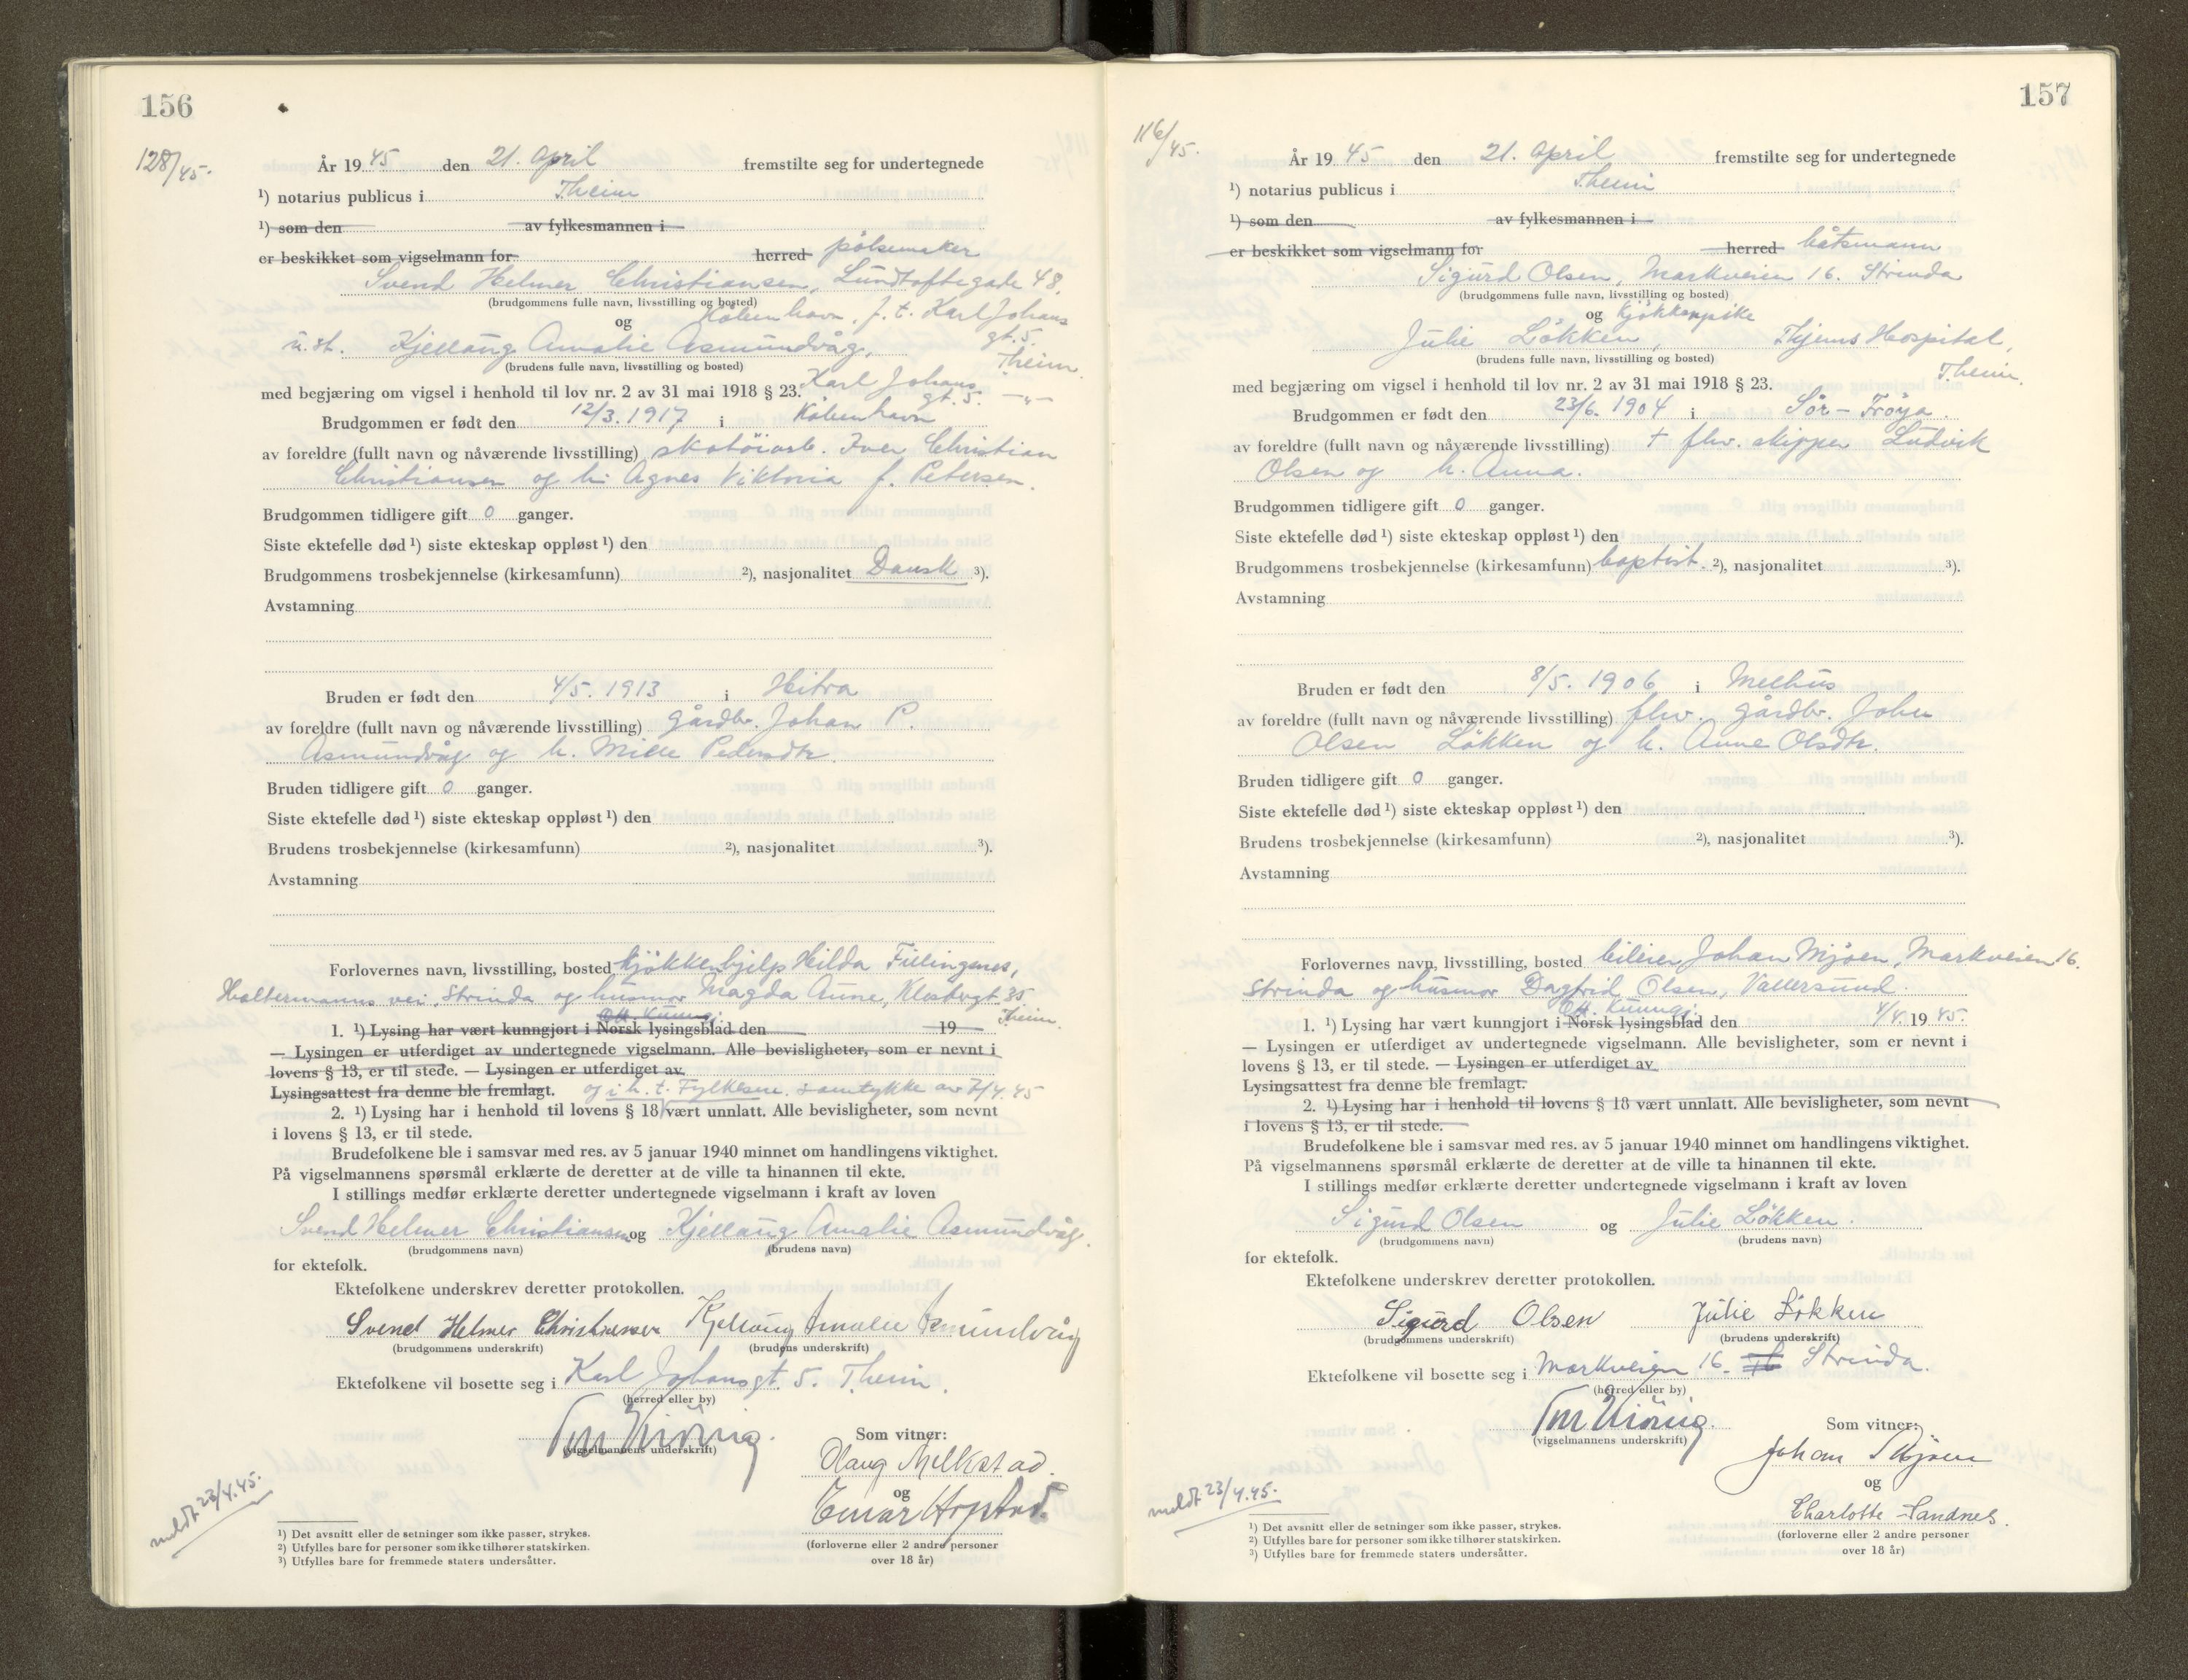 156
128/45.
År 1945 den 21. April fremstilte seg for undertegnede
¹) notarius publicus i T.heim
¹) som den av fylkesmannen i
er beskikket som vigselmann for herred pølsemaker
Svend Helmer Christiansen, Lundtoftegade 48,
(brudgommens fulle navn, livsstilling og bosted)
København, f. t. Karl Johans
og gt. 5.
u. st. Kjellaug Amalie Asmundvåg, T.heim.
(brudens fulle navn, livsstilling og bosted)
med begjæring om vigsel i henhold til lov nr. 2 av 31 mai 1918 § 23. Karl Johans
gt. 5. -"-
Brudgommen er født den 12/3. 1917 i København
av foreldre (fullt navn og nåværende livsstilling) skotöiarb. Iver Christian
Christiansen og h. Agnes Viktoria f. Petersen.
Brudgommen tidligere gift 0 ganger.
Siste ektefelle død ¹) siste ekteskap oppløst ¹) den
Brudgommens trosbekjennelse (kirkesamfunn) ²), nasjonalitet Dansk ³).
Avstamning
Bruden er født den 4/5. 1913 i Hitra
av foreldre (fullt navn og nåværende livsstilling) gårdbr. Johan P.
Asmundvåg og h. Mille Pedersdtr.
Bruden tidligere gift 0 ganger.
Siste ektefelle død ¹) siste ekteskap oppløst ¹) den
Brudens trosbekjennelse (kirkesamfunn) ²), nasjonalitet ³).
Avstamning
Forlovernes navn, livsstilling, bosted kjøkkenhjelp Hilda Fillingsnes,
Haltermanns vei, Strinda og husmor Magda Aune, Klostergt. 35.
Off. Kunngj. T.heim.
1. ¹) Lysing har vært kunngjort i Norsk lysingsblad den 19
— Lysingen er utferdiget av undertegnede vigselmann. Alle bevisligheter, som er nevnt i
lovens § 13, er til stede. — Lysingen er utferdiget av
Lysingsattest fra denne ble fremlagt. og i h. t. Fylkesm. samtykke av 7/4. 45
2. ¹) Lysing har i henhold til lovens § 18 vært unnlatt. Alle bevisligheter, som nevnt
i lovens § 13, er til stede.
Brudefolkene ble i samsvar med res. av 5 januar 1940 minnet om handlingens viktighet.
På vigselmannens spørsmål erklærte de deretter at de ville ta hinannen til ekte.
I stillings medfør erklærte deretter undertegnede vigselmann i kraft av loven
Svend Helmer Christiansen og Kjellaug Amalie Asmundvåg.
(brudgommens navn) (brudens navn)
for ektefolk.
Ektefolkene underskrev deretter protokollen.
Svend Helmer Christiansen Kjellaug Amalie Asmundvåg
(brudgommens underskrift) (brudens underskrift)
Ektefolkene vil bosette seg i Karl Johansgt. 5. T.heim.
(herred eller by)
(vigselmannens underskrift)
Som vitner:
Olaug Melkstad.
og
Einar Hopstad.
(forloverne eller 2 andre personer
over 18 år)
meldt 23/4. 45.
¹) Det avsnitt eller de setninger som ikke passer, strykes.
²) Utfylles bare for personer som ikke tilhører statskirken.
³) Utfylles bare for fremmede staters undersåtter.
157
116/45.
År 1945 den 21. April fremstilte seg for undertegnede
¹) notarius publicus i T.heim
¹) som den av fylkesmannen i
er beskikket som vigselmann for herred båtsmann
Sigurd Olsen, Markveien 16. Strinda
(brudgommens fulle navn, livsstilling og bosted)
og kjökkenpike
Julie Lökken, Thjems Hospital,
(brudens fulle navn, livsstilling og bosted) T.heim.
med begjæring om vigsel i henhold til lov nr. 2 av 31 mai 1918 § 23.
Brudgommen er født den 23/6. 1904 i Sör-Fröya.
av foreldre (fullt navn og nåværende livsstilling) + fhv. skipper Ludvik
Olsen og h. Anna.
Brudgommen tidligere gift 0 ganger.
Siste ektefelle død ¹) siste ekteskap oppløst ¹) den
Brudgommens trosbekjennelse (kirkesamfunn) baptist. ²), nasjonalitet ³).
Avstamning
Bruden er født den 8/5. 1906 i Melhus
av foreldre (fullt navn og nåværende livsstilling) fhv. gårdbr. John
Olsen Lökken og h. Anne Olsdtr.
Bruden tidligere gift 0 ganger.
Siste ektefelle død ¹) siste ekteskap oppløst ¹) den
Brudens trosbekjennelse (kirkesamfunn) ²), nasjonalitet ³).
Avstamning
Forlovernes navn, livsstilling, bosted bileier Johan Mjöen, Markveien 16.
Strinda og husmor Dagfrid Olsen, Vallersund.
Off. Kunngj.
1. ¹) Lysing har vært kunngjort i Norsk lysingsblad den 4/4. 1945.
— Lysingen er utferdiget av undertegnede vigselmann. Alle bevisligheter, som er nevnt i
lovens § 13, er til stede. — Lysingen er utferdiget av
Lysingsattest fra denne ble fremlagt.
2. ¹) Lysing har i henhold til lovens § 18 vært unnlatt. Alle bevisligheter, som nevnt
i lovens § 13, er til stede.
Brudefolkene ble i samsvar med res. av 5 januar 1940 minnet om handlingens viktighet.
På vigselmannens spørsmål erklærte de deretter at de ville ta hinannen til ekte.
I stillings medfør erklærte deretter undertegnede vigselmann i kraft av loven
Sigurd Olsen og Julie Lökken.
(brudgommens navn) (brudens navn)
for ektefolk.
Ektefolkene underskrev deretter protokollen.
Sigurd Olsen Julie Lökken
(brudgommens underskrift) (brudens underskrift)
Ektefolkene vil bosette seg i Markveien 16. Strinda.
(herred eller by)
(vigselmannens underskrift)
Som vitner:
Johan Mjöen
og
Charlotte Sandnes.
(forloverne eller 2 andre personer
over 18 år)
meldt 23/4. 45.
¹) Det avsnitt eller de setninger som ikke passer, strykes.
²) Utfylles bare for personer som ikke tilhører statskirken.
³) Utfylles bare for fremmede staters undersåtter.